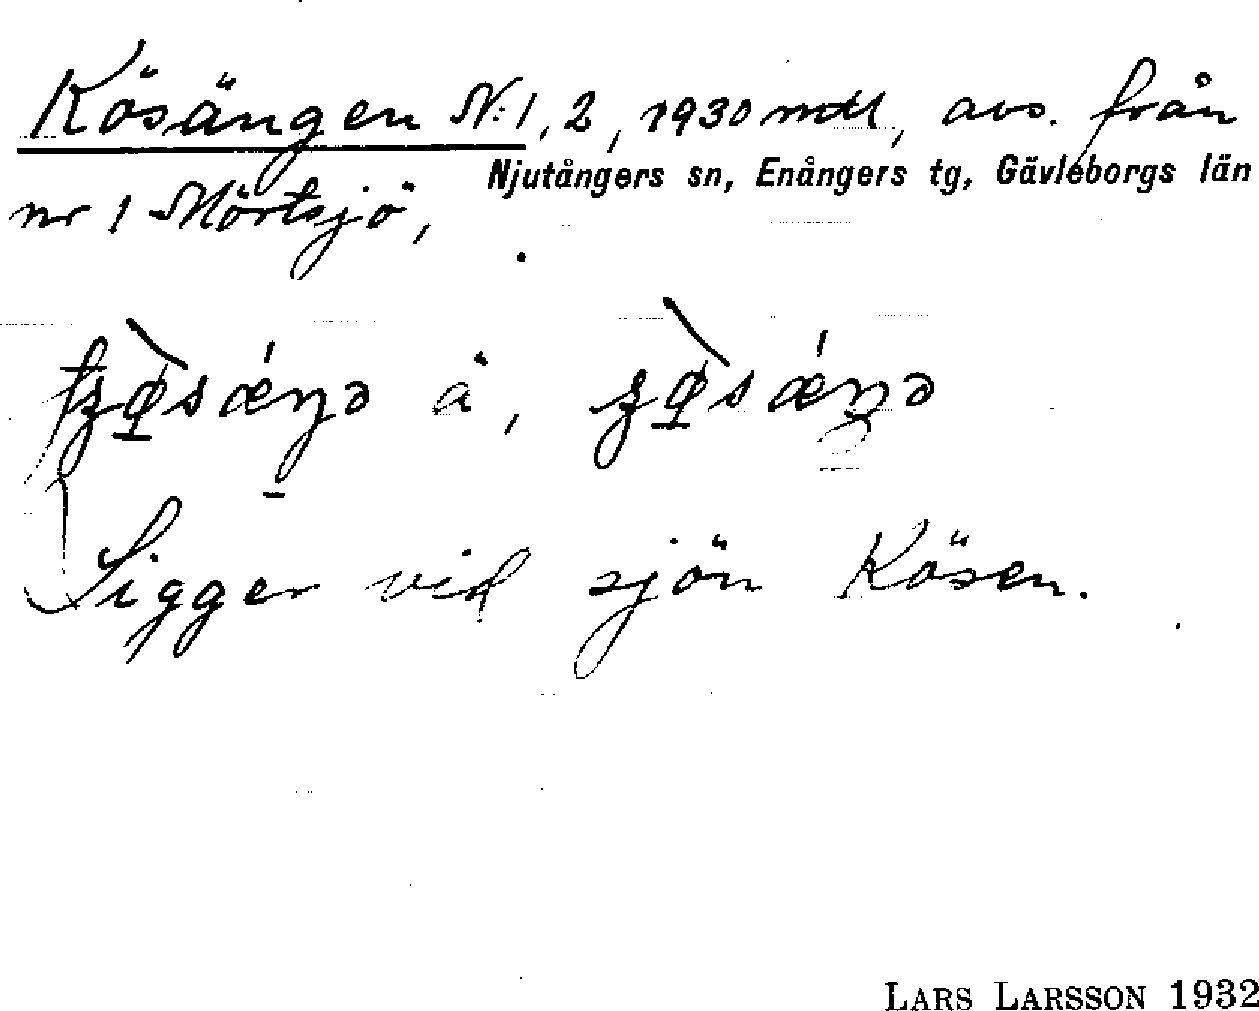 Kösängen N:1, 2, 1930 mtl, avs. från
Njutångers sn, Enångers tg, Gävleborgs län
nr 1 Mörtsjö,
Ligger vid sjön Kösen.
LARS LARSSON 1932